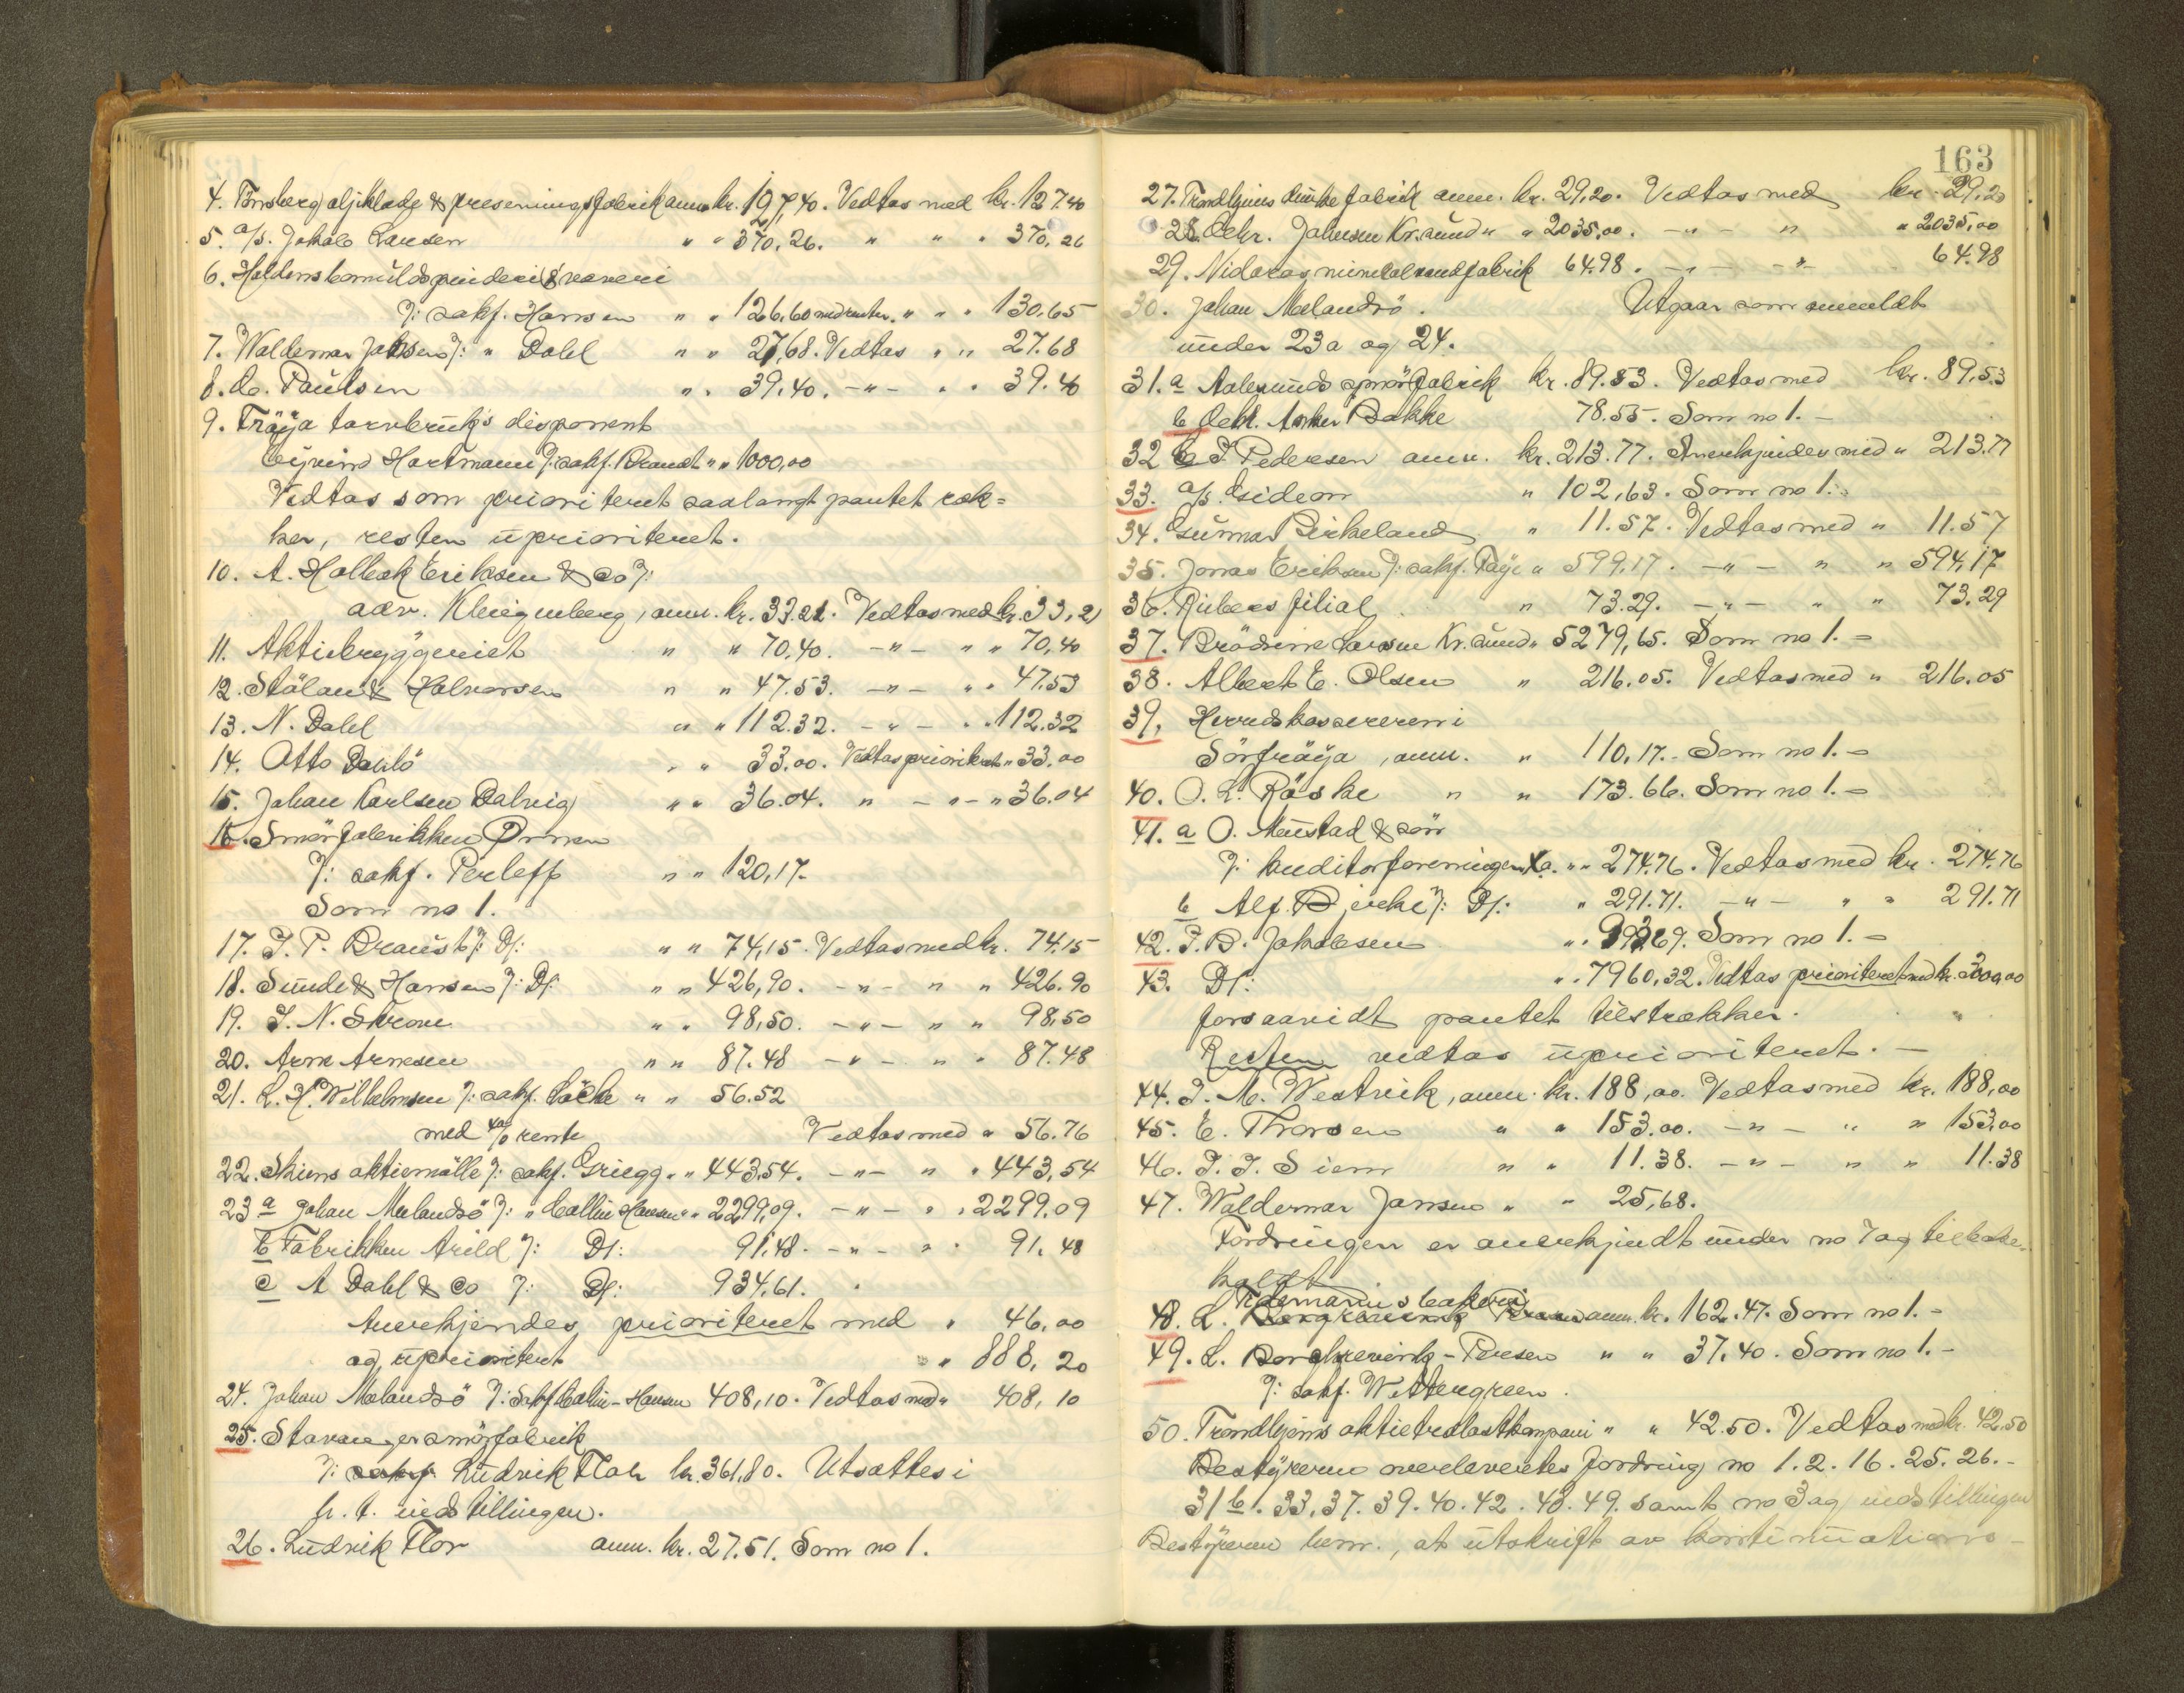 4. Tønsberg oljeklæde & preseningsfabrik anm. kr. 127,40. Vedtas med kr. 127.40
5. a/s. Jakob Larsen " " 370,26. " " " 370,26
6. Haldens bomuldspinderi & væveri
ɔ: sakf. Hansen " " 126,60 med renter. " " " 130,65
7. Waldemar Jansen ɔ: " Dahl " " 27,68. Vedtas " " 27.68
8. Paulsen " " 39.40. -"- " " 39.40
9. Fröya torvbruks disponent
Eyvind Hartmann ɔ: sakf. Brandt " " 1000,00
Vedtas som prioriteret saalangt pantet ræk-
ker, resten uprioriteret.
10. A. Holbæk Eriksen & Co ɔ:
adv. Klingenberg, anm. kr. 33.21. Vedtas med kr. 33,21
11. Aktiebryggeriet " " 70.40. -"- " " 70,40
12. Stölan & Halvorsen " " 47.53. -"- " " 47.53
13. N. Dahl " " 112.32. -"- " " 112.32
14. Otto Dahlö " " 33.00. Vedtas prioriteret " 33,00
15. Johan Karlsen Dalvig " " 36.04. " -"- " 36.04
16. Smörfabrikken Ørnen
ɔ: sakf. Perleff " " 120,17.
Som no 1.
17. J. P. Braust ɔ: Ds: " " 74,15. Vedtas med kr. 74.15
18. Sunde & Hansen ɔ: Ds: " " 426,90. -"- " " 426.90
19. J. N. Skrove " " 98,50. -"- " " 98,50
20. Arne Arnesen " " 87.48 -"- " " 87.48
21. L. H. Wilhelmsen ɔ: sakf. Löche " " 56.52
med 4% rente Vedtas med " 56.76
22. Skiens aktiemölle ɔ: sakf. Griegg " " 443,54. -"- " " 443,54
23 a Johan Melandsö ɔ: " Collin Hansen " " 2299,09. -"- " " 2299.09
b Fabrikken Arild ɔ: Ds: 91,48. -"- " " 91.48
c A Dahl & Co ɔ: Ds: 934,61.
Anerkjendes prioriteret med " 46,00
og uprioritert " " 888,20
24. Johan Melandsö ɔ: sakf Collin-Hansen 408,10. Vedtas med " 408,10
25. Stavanger smörfabrik
ɔ: Ludvik Flor kr. 361,80. Utsættes i
h. t. indstillingen.
26. Ludvik Flor anm. kr. 27.51. Som no 1.
163
27. Trondhjems fabrik anm. kr. 29,20. Vedtas med kr. 29,20
28. Chr. Johnsen Kr.sund " " 2035,00. -"- " " 2035,00
29. Nidaros mineralvandfabrik 64.98. -"- -"- 64.98
30. Johan Melandsö. Utgaar som anmeldt
under 23a og 24.
31. a Aalesunds smörfabrik kr. 89.53. Vedtas med kr. 89,53
b Chr. Anker Bakke 78.55. Som no 1. -
32 J. Pedersen anm. kr. 213.77. Anerkjendes med " 213.77
33. a/s. Gideon " 102,63. Som no 1. -
34. Gunnar Birkeland " 11.57. Vedtas med " 11.57
35. Jonas Eriksen ɔ: sakf. Føye " 599,17. -"- " " 594,17
36. Riebers filial " 73.29. -"- " " 73.29
37. Brödrene Larsen Kr.sund " 5279,65. Som no 1. -
38. Albert E. Olsen " 216.05. Vedtas med " 216.05
39. Herredskassereren i
Sörfröya, anm. " 110,17. Som no 1. -
40. O. L. Röske " " 173.66. Som no 1. -
41. a O. Mustad & sön
ɔ: kreditorforeningen " " 274.76. Vedtas med kr. 274.76
b Alf. Bjercke ɔ: Ds: " 291.71. -"- " " 291.71
42. J. B. Jakobsen " . Som no 1. -
43. Ds: " " 7960,32. Vedtas prioriteret med kr. 3000,00
forsaavidt pantet tilstrækker.
Resten vedtas uprioriteret. -
44. J. M. Westvik, anm. kr. 188,00. Vedtas med kr. 188,00
45. E. Thorsen " " 153.00. -"- " " 153,00
46. J. J. Siem " " 11.38. -"- " " 11.38
47. Waldemar Jansen " " 25,68.
Fordringen er anerkjendt under no 7 og tilbake-
kaldt
48. L. Tidemanns anm. kr. 162.47. Som no 1. -
49. L. Borchgrevink-Persen " " 37.40. Som no 1. -
ɔ: sakf. Wettergreen.
50. Trondhjems aktietrælastkompani " " 42.50. Vedtas med kr. 42.50
Bestyreren overleverte fordring no 1. 2. 16. 25. 26. -
31 b. 33. 37. 39. 40. 42. 48. 49. samt no 3 og indstillingen
Bestyreren bem., at utskrift av kontinuations-